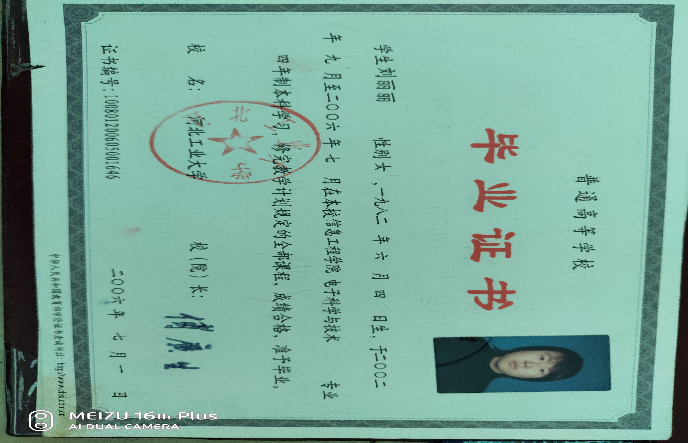 普通高等学校
毕业证书
学生 刘丽丽 性别 女 ,一九八二 年 六 月 四 日生, 于二〇〇二
年 九 月至二〇〇六 年 七 月在本校信息工程学院 电子科学与技术 专业
四年制本科学习, 修完教学计划规定的全部课程, 成绩合格, 准予毕业。
校 名: 河北工业大学 校(院)长:
证书编号: 100801200605001646 二〇〇六 年 七 月 一 日
MEIZU 16th Plus
AI DUAL CAMERA